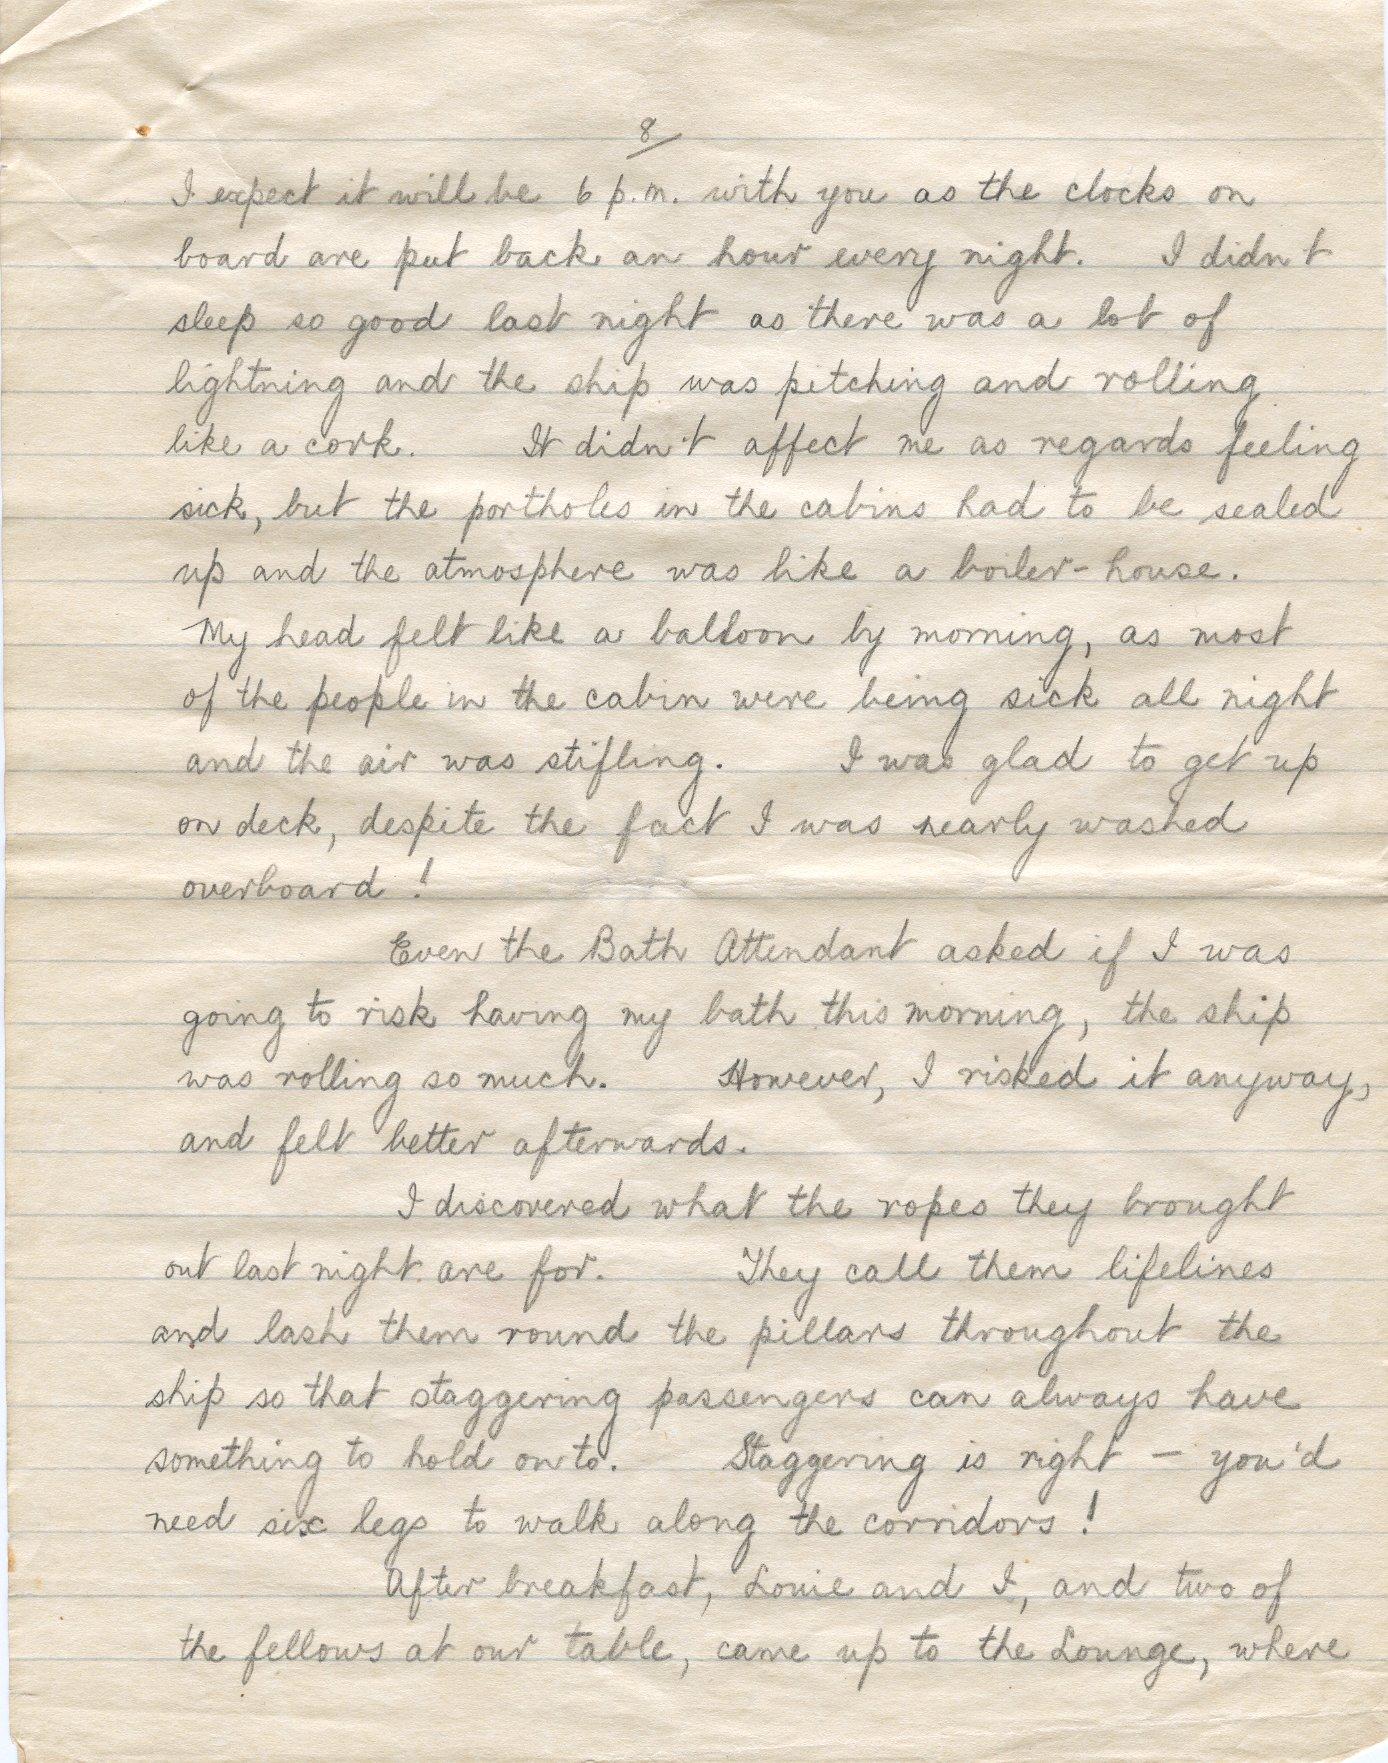 8/
I expect it will be 6 p.m. with you as the clocks on
board are put back an hour every night. I didn't
sleep so good last night as there was a lot of
lightning and the ship was pitching and rolling
like a cork. It didn't affect me as regards feeling
sick, but the portholes in the cabins had to be sealed
up and the atmosphere was like a boiler-house.
My head felt like a balloon by morning, as most
of the people in the cabin were being sick all night
and the air was stifling. I was glad to get up
on deck, despite the fact I was nearly washed
overboard!
Even the Bath Attendant asked if I was
going to risk having my bath this morning, the ship
was rolling so much. However, I risked it anyway,
and felt better afterwards.
I discovered what the ropes they brought
out last night are for. They call them lifelines
and lash them round the pillars throughout the
ship so that staggering passengers can always have
something to hold onto. Staggering is right — you'd
need six legs to walk along the corridors!
After breakfast, Louie and I, and two of
the fellows at our table, came up to the Lounge, where